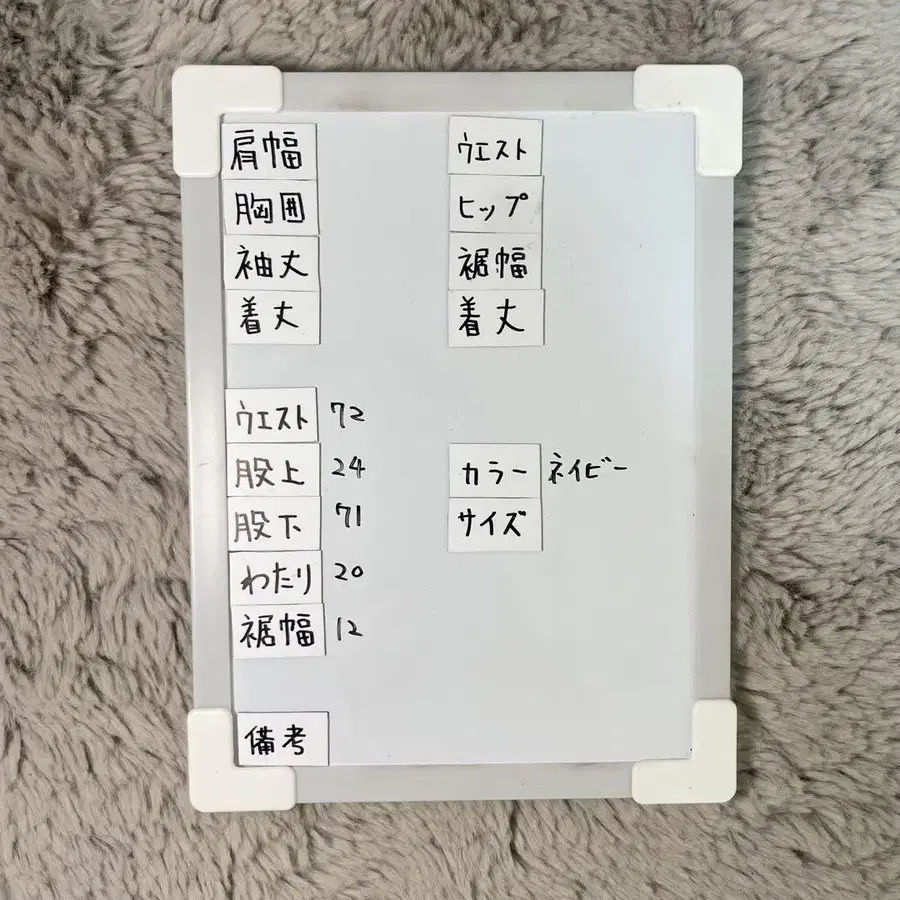 肩幅
胸囲
袖丈
着丈
ウエスト
ヒップ
裾幅
着丈
ウエスト 72
股上 24
股下 71
わたり 20
裾幅 12
カラー ネイビー
サイズ
備考